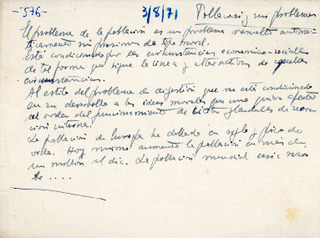 -576-
3/8/71
Poblacion y sus problemas
El problema de la población es un problema resuelto automa-
ticamente sin presiones de tipo moral.
Está condicionado por las circunstancias economico-sociales
de tal forma que sigue la linea y alternativas de aquellas
circunstancias.
Al estilo del problema de digestión que no está condicionado
en su desarrollo a las ideas morales que uno quiera
al orden del funcionamiento de glandulas de
ción interna.
La población de Europa ha doblado en siglo y pico de
vida. Hoy mismo aumenta la población en más de
un millon al dia. La población mundial
te ....